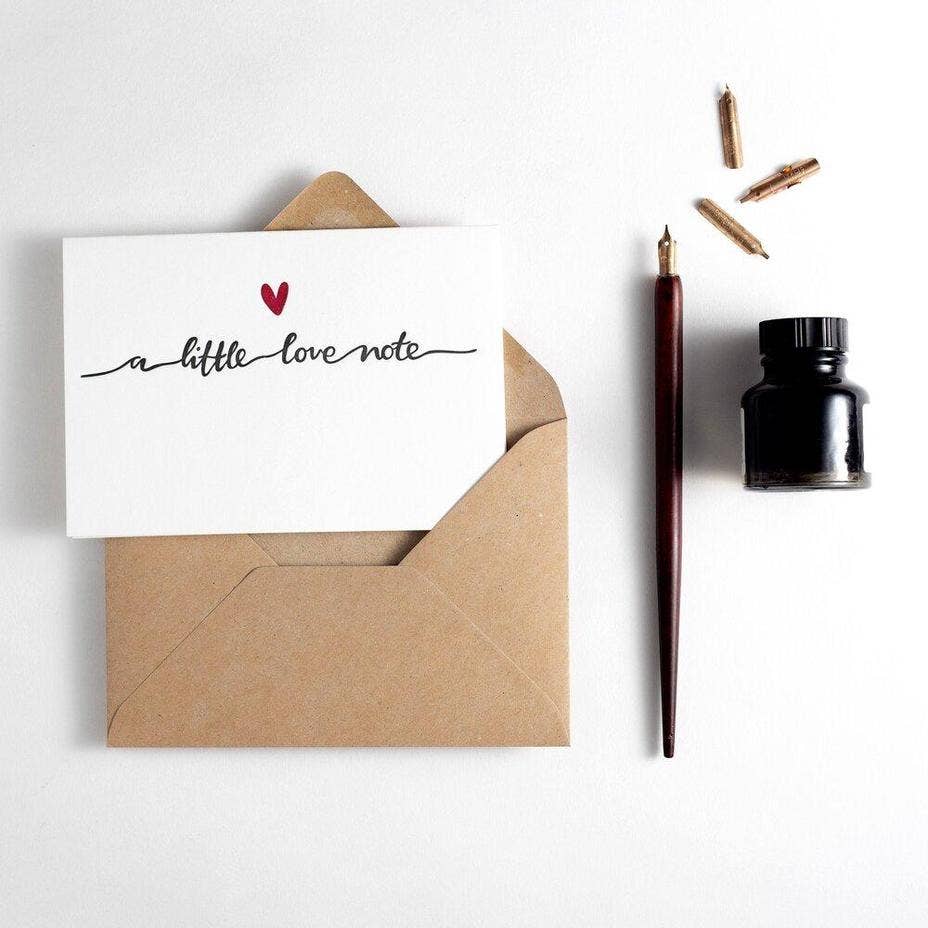 a little love note